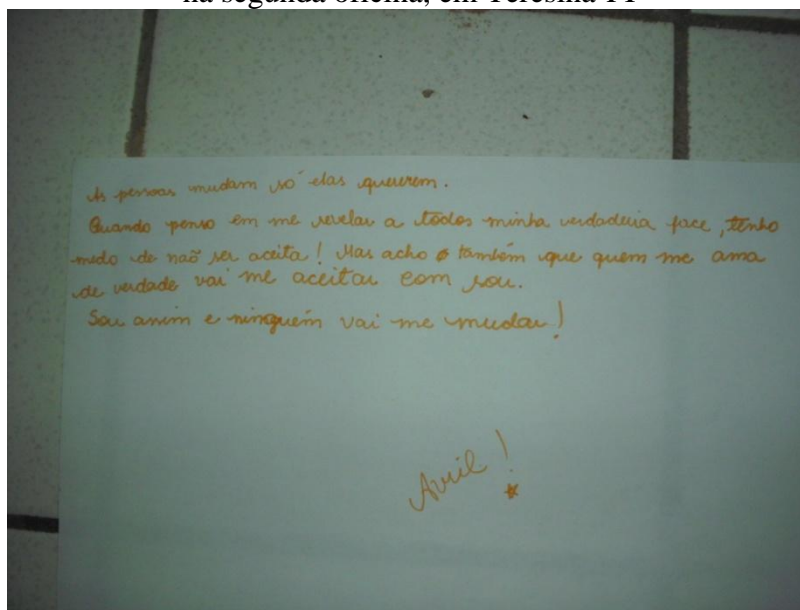 na segunda oficina, em Teresina-PI
As pessoas mudam só elas quererem.
Quando penso em me revelar a todos minha verdadeira face, tenho
medo de naõ ser aceita! Mas acho também que quem me ama
de verdade vai me aceitar com sou.
Sou assim e ninguém vai me mudar!
Avril!